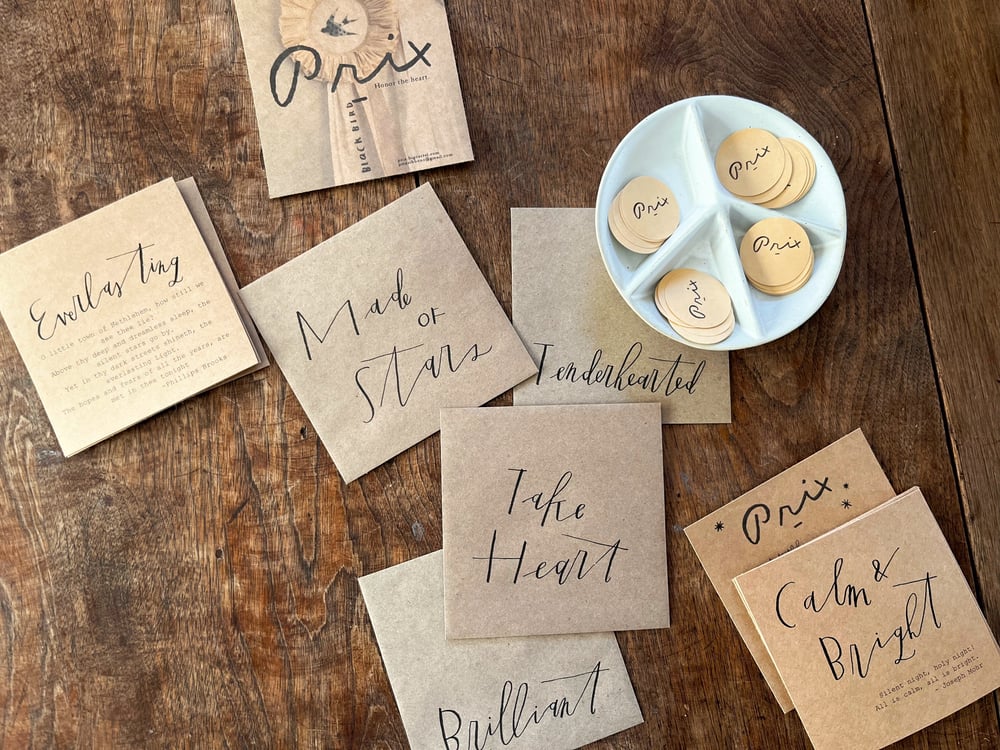 Prix
Honor the heart.
BLACKBIRD
Everlasting
O little town of Bethlehem, how still we
see thee lie!
Above thy deep and dreamless sleep, the
silent stars go by.
Yet in thy dark streets shineth, the
everlasting light.
The hopes and fears of all the years, are
met in thee tonight
-Phillips Brooks
Made
OF
Stars
Tenderhearted
Prix
Prix
Prix
Prix
Take
Heart
Brilliant
* Prix *
*
Calm &
Bright
Silent night, holy night!
All is calm, all is bright.
- Joseph Mohr